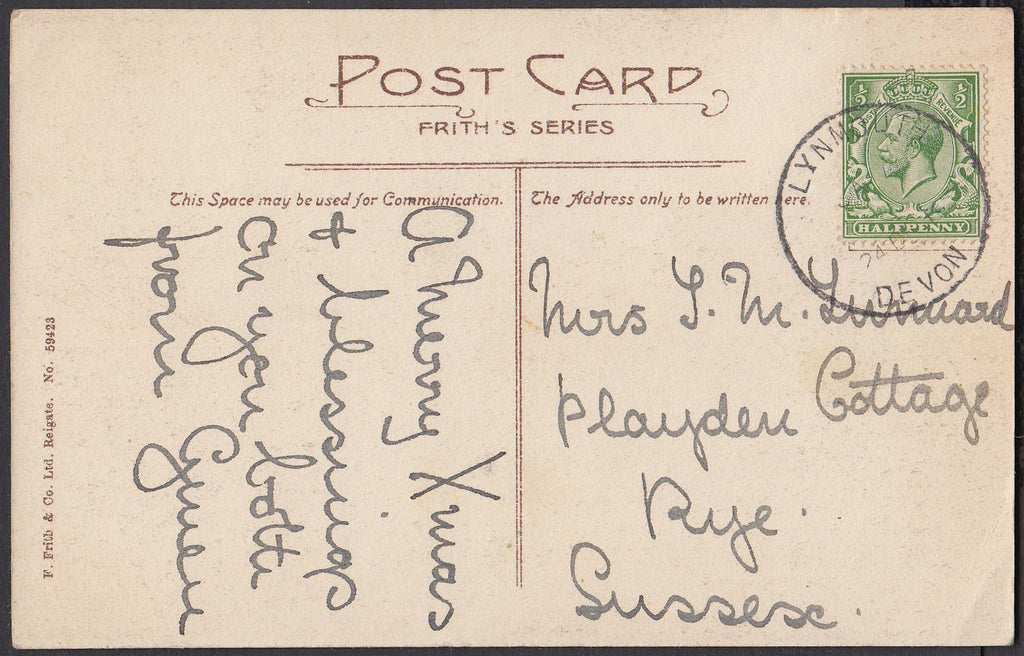 POST CARD
FRITH'S SERIES
This Space may be used for Communication.
The Address only to be written here.
A Merry Xmas
& blessings
on you both
from Gwen
Mrs
M.
Cottage
Playden
Rye.
Sussex.
½ ½
POSTAGE REVENUE
HALFPENNY
LYNMOUTH
24
DEVON
F. Frith & Co. Ltd. Reigate. No. 59423